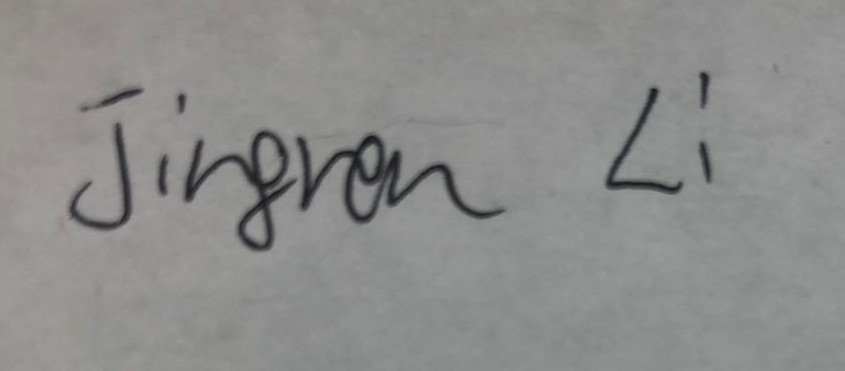 Jingren Li